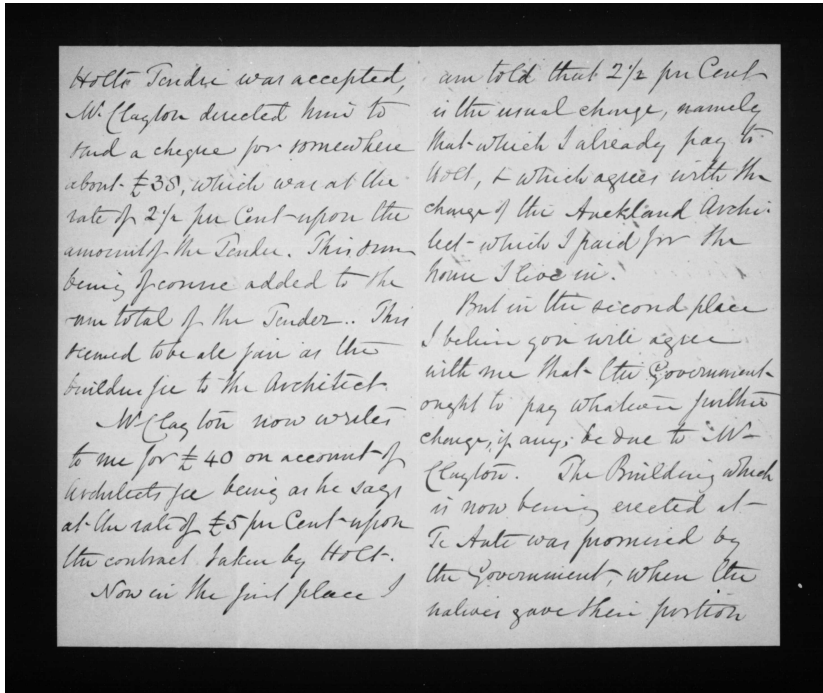 Holts Tender was accepted,
Mr Clayton directed him to
send a cheque for somewhere
about £38, which was at the
rate of 2½ per Cent upon the
amount of the Tender. This sum
being of course added to the
sum total of the Tender.. This
seemed to be all fair as the
builders fee to the Architect
Mr Clayton now writes
to me for £40 on account of
Architects fee being as he says
at the rate of £5 per Cent upon
the contract taken by Holt.
Now in the first place I
am told that 2½ per Cent
is the usual charge, namely
that which I already pay to
Holt, & which agrees with the
charge of the Auckland Archi-
tect which I paid for the
house I live in.
But in the second place
I believe you will agree
with me that the Government
ought to pay whatever further
charge, if any, be due to Mr
Clayton. The Building which
is now being erected at
Te Aute was promised by
the Government, when the
natives gave their portion